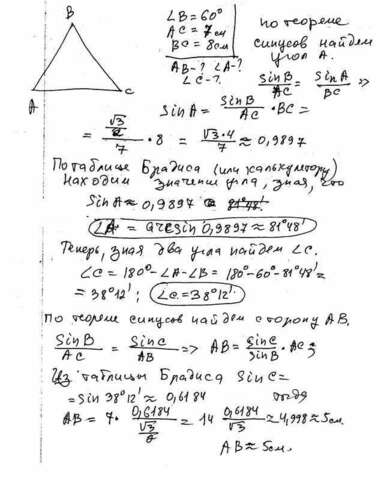 B
∠B = 60°
AC = 7см
BC = 8см
AB - ? ∠A - ?
∠C - ?
A
C
по теореме
синусов найдем
угол A.
SinB/AC = SinA/BC =>
SinA = SinB/AC · BC =
= (√3/2)/7 · 8 = √3·4/7 ≈ 0,9897
По таблице Брадиса (или калькулятору)
находим значение угла, зная, что
SinA ≈ 0,9897
∠A = arcsin 0,9897 ≈ 81°48'
Теперь, зная два угла найдем ∠C.
∠C = 180° - ∠A - ∠B = 180° - 60° - 81°48' =
= 38°12'; ∠C = 38°12'
По теореме синусов найдем сторону AB.
SinB/AC = SinC/AB => AB = SinC/SinB · AC =
Из таблицы Брадиса SinC =
= Sin 38°12' ≈ 0,6184 тогда
AB = 7 · 0,6184/(√3/2) = 14 0,6184/√3 ≈ 4,998 ≈ 5см.
AB ≈ 5см.